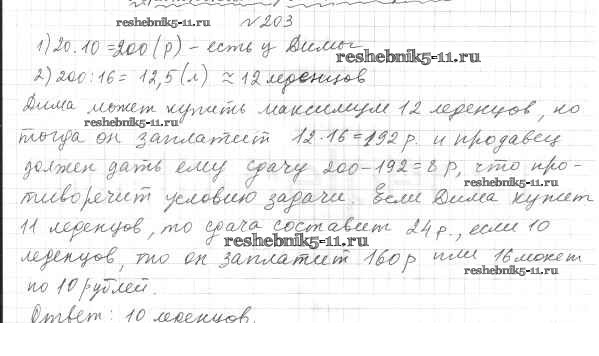 reshebnik5-11.ru
№ 203
1) 20·10=200 (р) – есть у Димы
reshebnik5-11.ru
2) 200:16= 12,5 (л) ≈ 12 леденцов
Дима может купить максимум 12 леденцов, но
reshebnik5-11.ru
тогда он заплатит 12·16=192 р. и продавец
должен дать ему сдачу 200–192=8 р, что про-
reshebnik5-11.ru
тиворечит условию задачи. Если Дима купит
11 леденцов, то сдача составит 24 р., если 10
reshebnik5-11.ru
леденцов, то он заплатит 160 р или 16 монет
reshebnik5-11.ru
по 10 рублей.
Ответ: 10 леденцов.